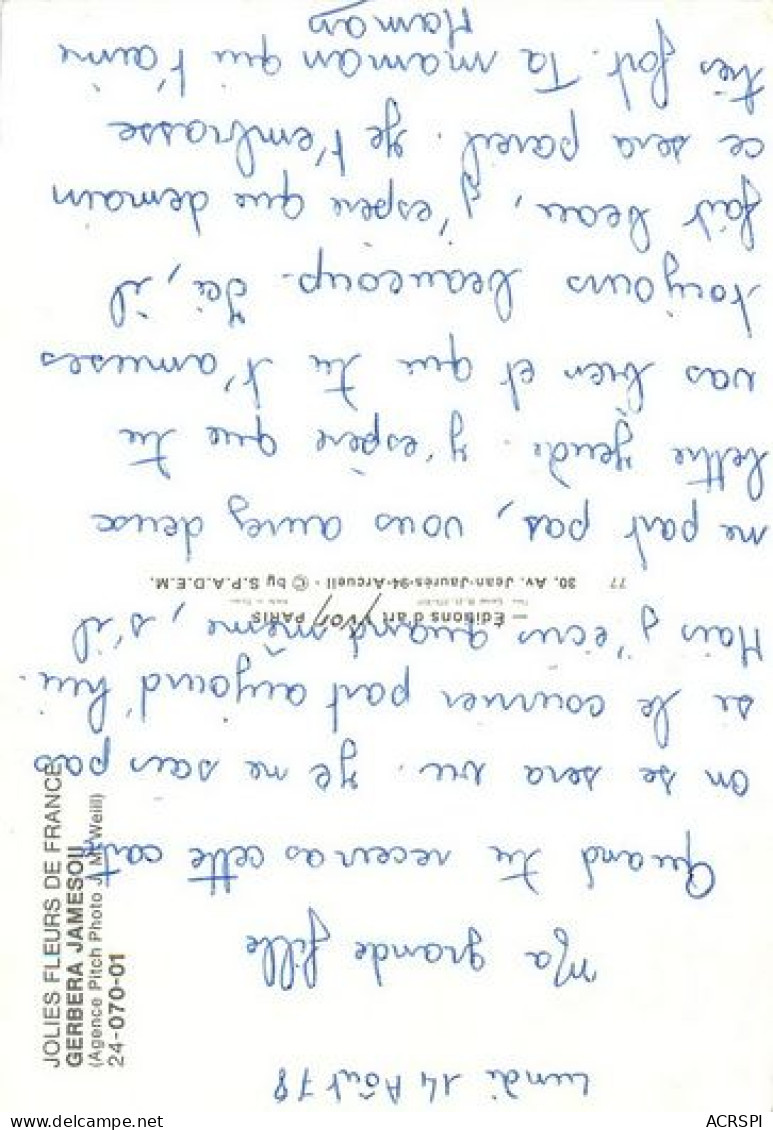 Lundi 14 Août 78
Ma grande fille
Quand tu recevras cette carte
on se sera vu. Je ne sais pas
si le courrier part aujourd'hui.
Mais j'écris quand même, s'il
ne part pas, vous aurez deux
lettre jeudi. J'espère que tu
vas bien et que tu t'amuses
toujours beaucoup. Ici, il
fait beau, j'espère que demain
ce sera pareil. Je t'embrasse
très fort. Ta maman qui t'aime
Maman
JOLIES FLEURS DE FRANCE
GERBERA JAMESOII
(Agence Pitch Photo J. M. Weill)
24-070-01
— Éditions d'art Yvon PARIS
77 30, Av. Jean-Jaurès-94-Arcueil - © by S.P.A.D.E.M.
ACRSPI